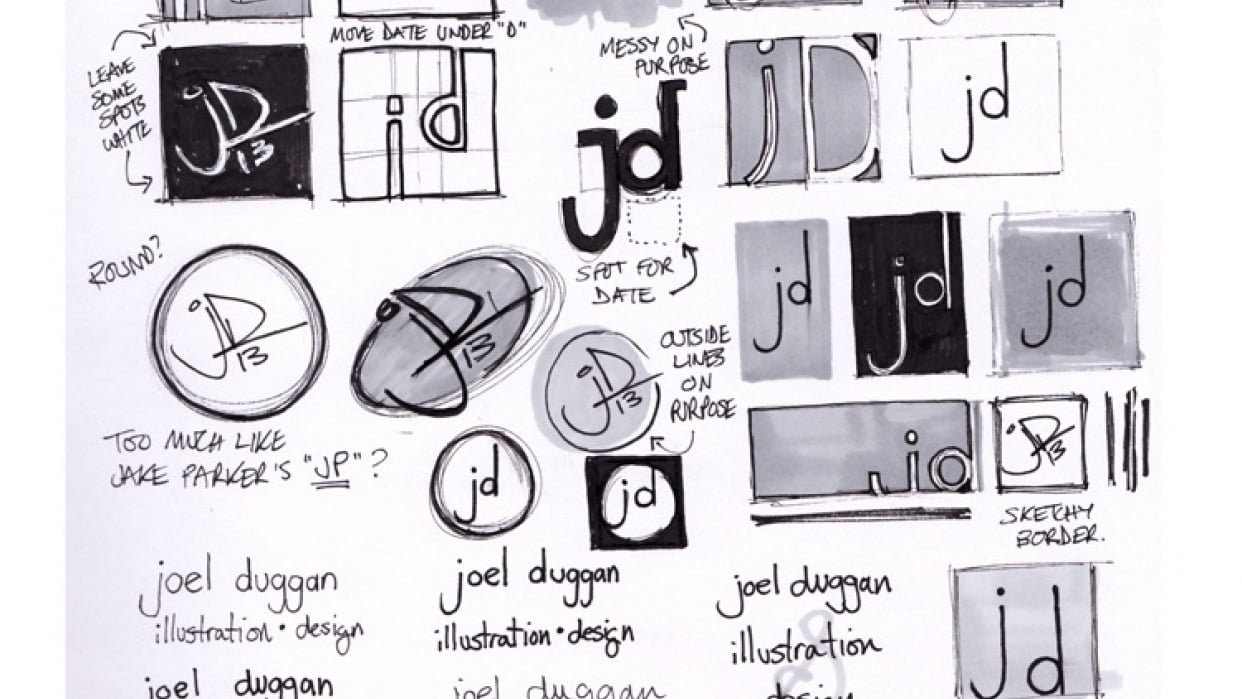 MOVE DATE UNDER "D"
MESSY ON
PURPOSE
LEAVE
SOME
SPOTS
WHITE
jD
13
jd
jd
jD
jd
SPOT FOR
DATE
ROUND?
jD
13
jD
13
jD
13
OUTSIDE
LINES
ON
PURPOSE
jd
jd
jd
TOO MUCH LIKE
JAKE PARKER'S "JP"?
jd
jd
jd
jD
13
SKETCHY
BORDER.
joel duggan
illustration • design
joel duggan
illustration • design
joel duggan
illustration
design
jd
joel duggan
joel duggan